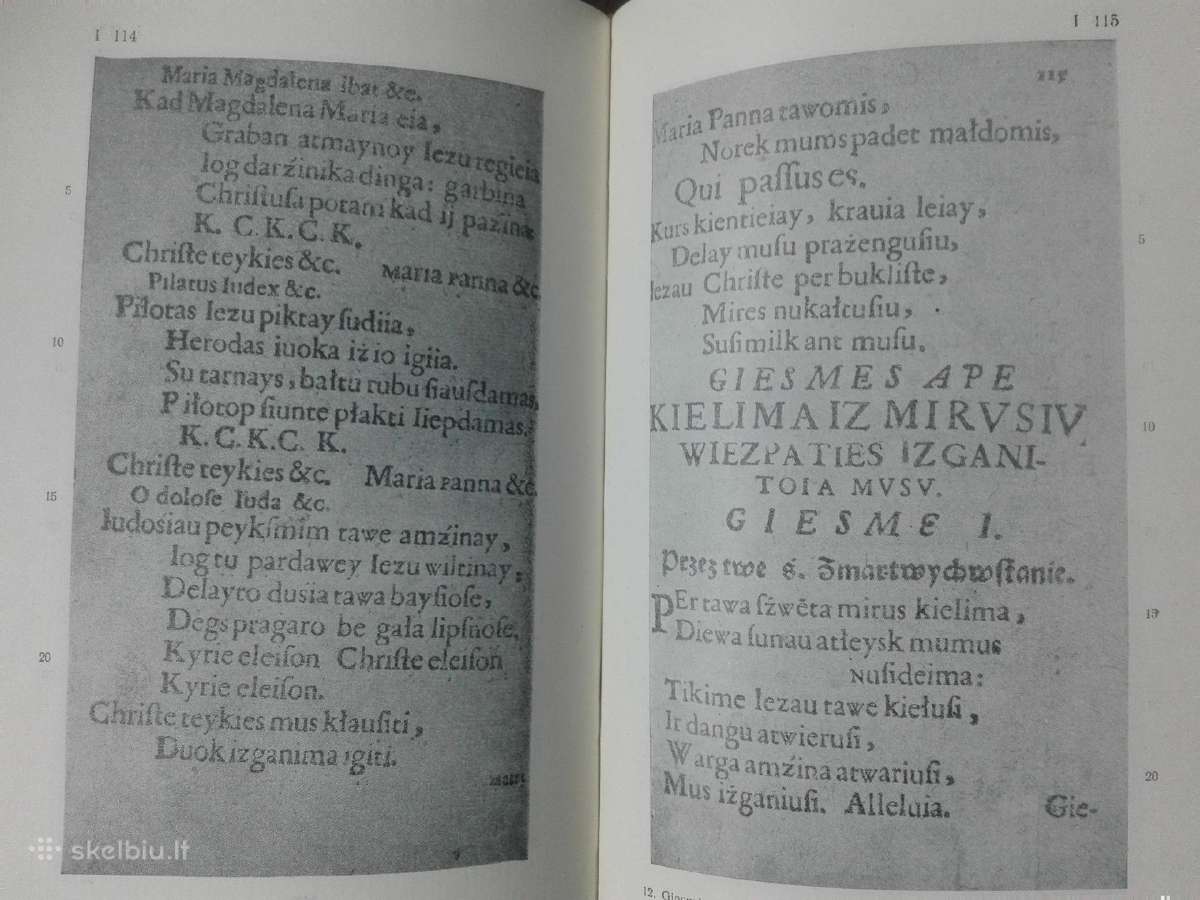 I 114
Maria Magdalena ibat &c.
Kad Magdalena Maria eia,
Graban atmaynoy Iezu regieia
Iog darźinika dinga: garbina
5
Chriſtuſa potam kad ij paźina
K. C. K. C. K.
Chriſte teykies &c. Maria Panna &c.
Pilatus Iudex &c.
Piłotas Iezu piktay ſudiia,
10
Herodas iuoka iż io igiia.
Su tarnays, bałtu rubu ſiauſdamas,
Piłotop ſiunte płakti liepdamas.
K. C. K. C. K.
Chriſte teykies &c. Maria Panna &c.
15
O doloſe Iuda &c.
Iudośiau peykſmim tawe amźinay,
Iog tu pardawey Iezu wiltinay,
Delayto dusia tawa bayſioſe,
Degs pragaro be gała lipſnoſe.
20
Kyrie eleiſon Chriſte eleiſon
Kyrie eleiſon.
Chriſte teykies mus kłauſiti,
Duok izganima igiti.
I 115
115
Maria Panna tawomis,
Norek mums padet małdomis,
Qui paſſus es.
Kurs kientieiay, krauia leiay,
5
Delay muſu prażenguſiu,
Iezau Chriſte per bukliſte,
Mires nukałtuſiu,
Suſimilk ant muſu.
GIESMES APE
KIELIMA IZ MIRVSIV
10
WIEZPATIES IZGANI-
TOIA MVSV.
GIESME I.
Przez twe ś. Zmartwychwſtanie.
PEr tawa ſżwēta mirus kielima,
15
Diewa ſunau atłeysk mumus
Nuſideima:
Tikime Iezau tawe kiełuſi,
Ir dangu atwieruſi,
Warga amźina atwariuſi,
20
Mus iżganiuſi. Alleluia.
Gie-
12.
skelbiu.lt